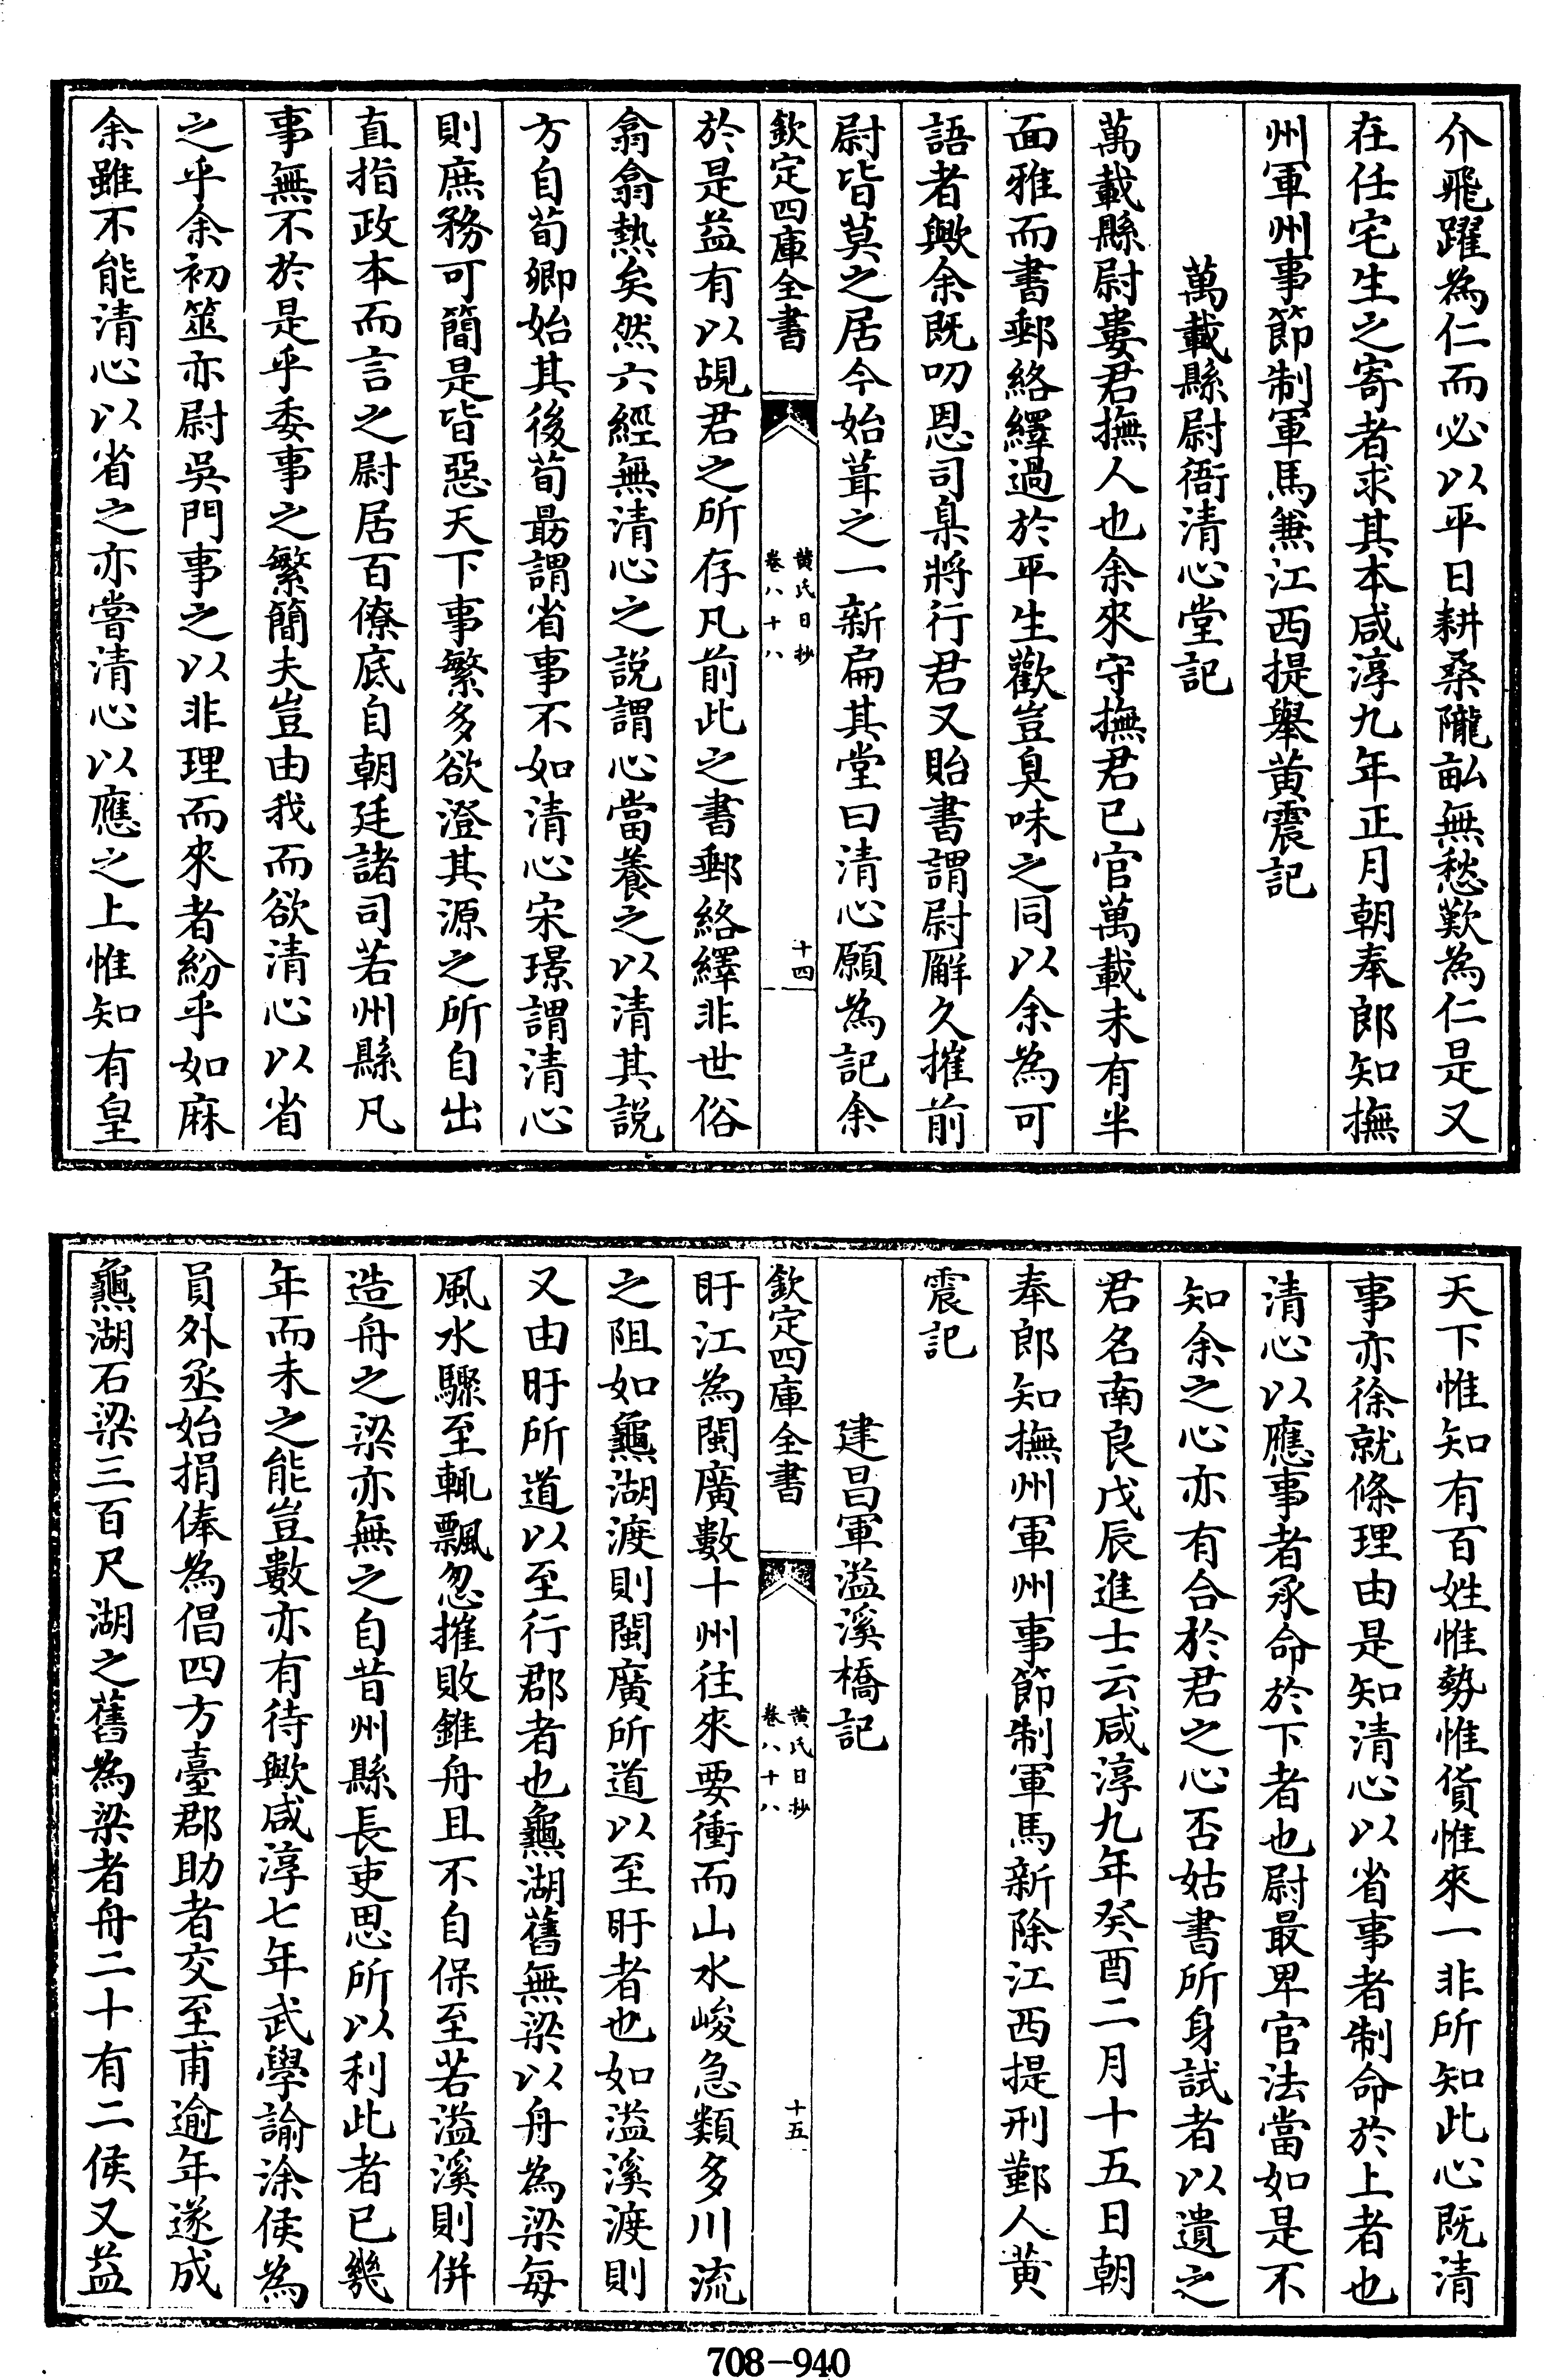 介飛躍為仁而必以平日耕桑隴畝無愁歎為仁是又
在任宅生之寄者求其本咸淳九年正月朝奉郎知撫
州軍州事節制軍馬兼江西提舉黄震記
萬載縣尉衙清心堂記
萬載縣尉婁君撫人也余來守撫君已官萬載未有半
面雅而書郵絡繹過於平生歡豈臭味之同以余為可
語者歟余既叨恩司臬將行君又貽書謂尉廨久摧前
尉皆莫之居今始葺之一新扁其堂曰清心願為記余
欽定四庫全書
黄氏日抄
卷八十八
十四
於是益有以覘君之所存凡前此之書郵絡繹非世俗
翕翕熱矣然六經無清心之説謂心當養之以清其説
方自荀卿始其後荀勗謂省事不如清心宋璟謂清心
則庶務可簡是皆惡天下事繁多欲澄其源之所自出
直指政本而言之尉居百僚底自朝廷諸司若州縣凡
事無不於是乎委事之繁簡夫豈由我而欲清心以省
之乎余初筮亦尉吳門事之以非理而來者紛乎如麻
余雖不能清心以省之亦嘗清心以應之上惟知有皇
天下惟知有百姓惟勢惟貨惟來一非所知此心既清
事亦徐就條理由是知清心以省事者制命於上者也
清心以應事者承命於下者也尉最卑官法當如是不
知余之心亦有合於君之心否姑書所身試者以遺之
君名南良戊辰進士云咸淳九年癸酉二月十五日朝
奉郎知撫州軍州事節制軍馬新除江西提刑鄞人黄
震記
建昌軍溢溪橋記
欽定四庫全書
黄氏日抄
卷八十八
十五
盱江為閩廣數十州往來要衝而山水峻急類多川流
之阻如龜湖渡則閩廣所道以至盱者也如溢溪渡則
又由盱所道以至行郡者也龜湖舊無梁以舟為梁每
風水驟至輒飄忽摧敗錐舟且不自保至若溢溪則併
造舟之梁亦無之自昔州縣長吏思所以利此者已幾
年而未之能豈數亦有待歟咸淳七年武學諭涂侯為
員外丞始捐俸為倡四方臺郡助者交至甫逾年遂成
龜湖石梁三百尺湖之舊為梁者舟二十有二侯又益
708-940